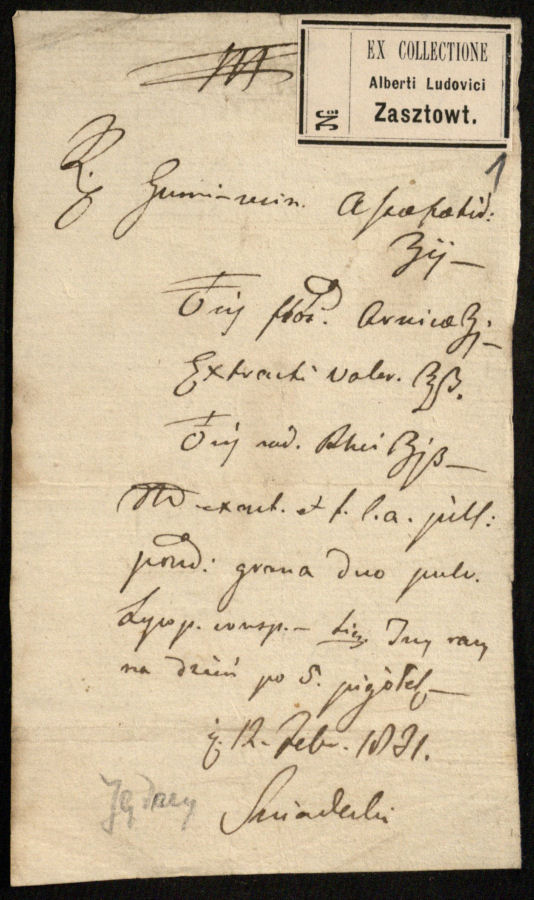 EX COLLECTIONE
Alberti Ludovici
Zasztowt.
№
1
Rp Gummi-resin. Asae foetid:
ʒij
flor. Arnicae ʒj
Extracti Valer. ʒß.
rad. Rhei ʒjß
exact. et f. l. a. pill:
pond: grana duo pulv.
Lycop. consp. trzy razy
na dzień po 5. pigółek
12. Febr. 1831.
Sniadecki
Jędrzej